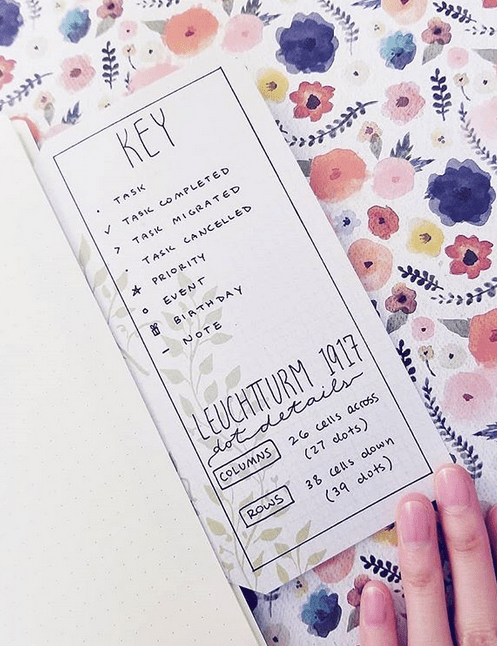 KEY
· TASK
✓ TASK COMPLETED
> TASK MIGRATED
· TASK CANCELLED
★ PRIORITY
○ EVENT
🎁 BIRTHDAY
– NOTE
LEUCHTTURM 1917
dot details
COLUMNS 26 cells across
(27 dots)
ROWS 38 cells down
(39 dots)